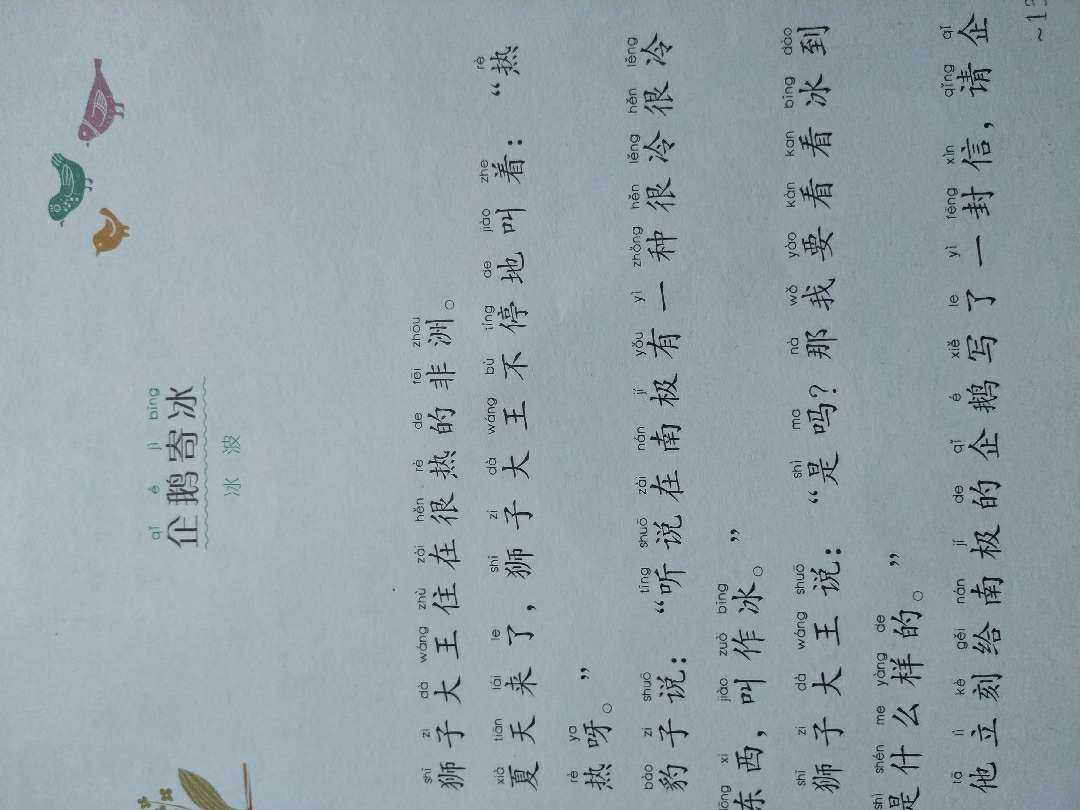 qǐ é jì bīng
企鹅寄冰
冰 波
shī zi dà wáng zhù zài hěn rè de fēi zhōu
狮子大王住在很热的非洲。
xià tiān lái le shī zi dà wáng bù tíng de jiào zhe rè
夏天来了，狮子大王不停地叫着：“热
rè ya
热呀。”
bào zi shuō tīng shuō zài nán jí yǒu yì zhǒng hěn lěng hěn lěng
豹子说：“听说在南极有一种很冷很冷
dōng xi jiào zuò bīng
东西，叫作冰。”
shī zi dà wáng shuō shì ma nà wǒ yào kàn kan bīng dào
狮子大王说：“是吗？那我要看看冰到
shì shén me yàng de
是什么样的。”
tā lì kè gěi nán jí de qǐ é xiě le yì fēng xìn qǐng qǐ
他立刻给南极的企鹅写了一封信，请企